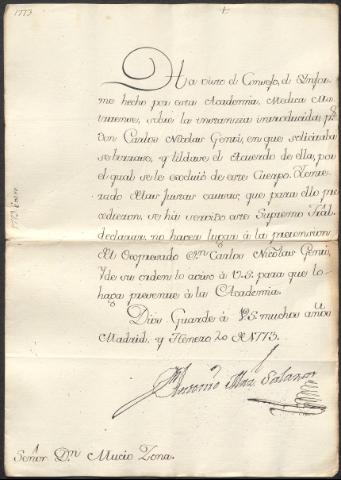 1773
Ha visto el Consejo, el Infor-
me hecho por esta Academia Medica Ma-
tritense, sobre la instancia introducida pr.
Don Carlos Nicolas Genti, en que solicitaba
se borrase, y tildase el Acuerdo de ella, por
el qual se le excluió de este Cuerpo. Y ente-
rado de las justas causas, que para ello pre-
cedieron, se ha servido este Supremo Tral.
declarar, no haver lugar á la pretension
del expresado Dn. Carlos Nicolas Genti,
y de su orden lo aviso à V.S. para que lo
haga presente à la Academia.
Dios Guarde à V.S. muchos años
Madrid, y Henero 20 de 1773.
Antonio Mrz. Salazar
Señor Dn. Mucio Zona.